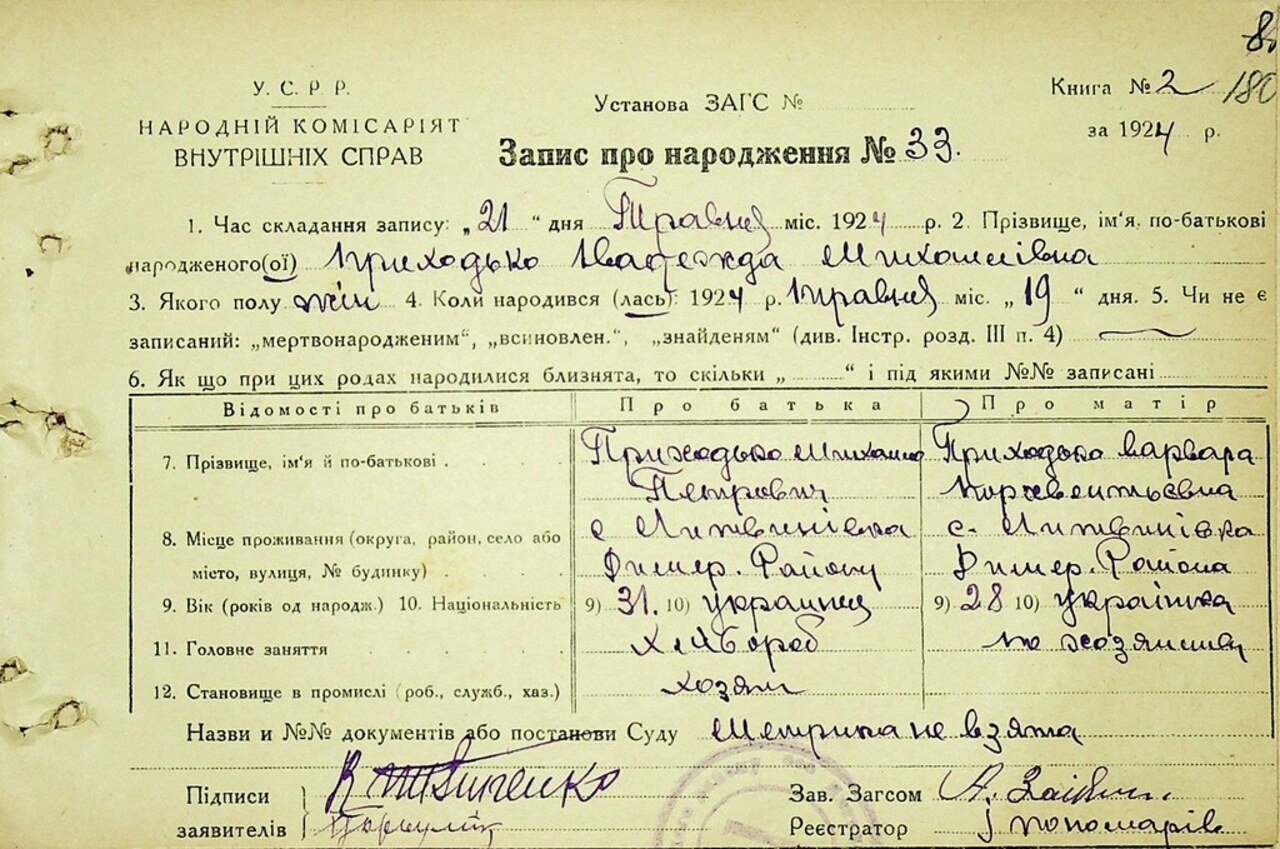 8
У. С. Р. Р.
НАРОДНІЙ КОМІСАРІЯТ
ВНУТРІШНІХ СПРАВ
Установа ЗАГС №
Книга № 2 180
за 1924 р.
Запис про народження № 33.
1. Час складання запису: „21“ дня Травня міс. 1924 р. 2. Прізвище, ім'я, по-батькові
народженого(ої) Приходько Надежда Михайлівна
3. Якого полу жін 4. Коли народився (лась): 1924 р. травня міс. „19“ дня. 5. Чи не є
записаний: „мертвонародженим“, „всиновлен.“, „знайденям“ (див. Інстр. розд. III п. 4)
6. Як що при цих родах народилися близнята, то скільки „ “ і під якими №№ записані
Відомості про батьків Про батька Про матір
7. Прізвище, ім'я й по-батькові Приходько Михайло Приходько Варвара
Петрович
8. Місце проживання (округа, район, село або с Литвинівка с. Литвинівка
місто, вулиця, № будинку) Димер. Району Димер. Района
9. Вік (років од народж.) 10. Національність 9) 31. 10) украинец 9) 28 10) українка
11. Головне заняття хлібороб по хозяйству
12. Становище в промислі (роб., служб., хаз.) хозяин
Назви и №№ документів або постанови Суду Метрика не взята
Підписи
заявителів
Зав. Загсом А.
Реєстратор Пономарів